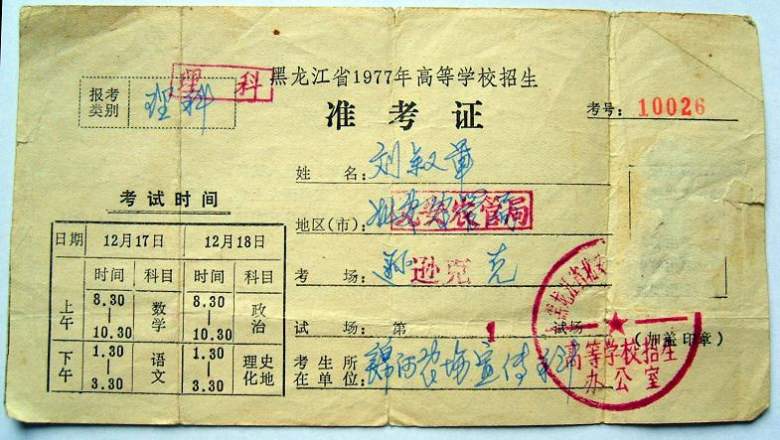 黑龙江省1977年高等学校招生
准考证
考号：10026
报考类别 理科
理科
姓名：刘叙
地区(市)： 农管局
考场：逊克
逊克
试场：第1试场
(加盖印章)
考生所在单位：锦河农场宣传
高等学校招生
办公室
考试时间
日期 12月17日 12月18日
时间 科目 时间 科目
上午 8.30—10.30 数学 8.30—10.30 政治
下午 1.30—3.30 语文 1.30—3.30 理化 史地